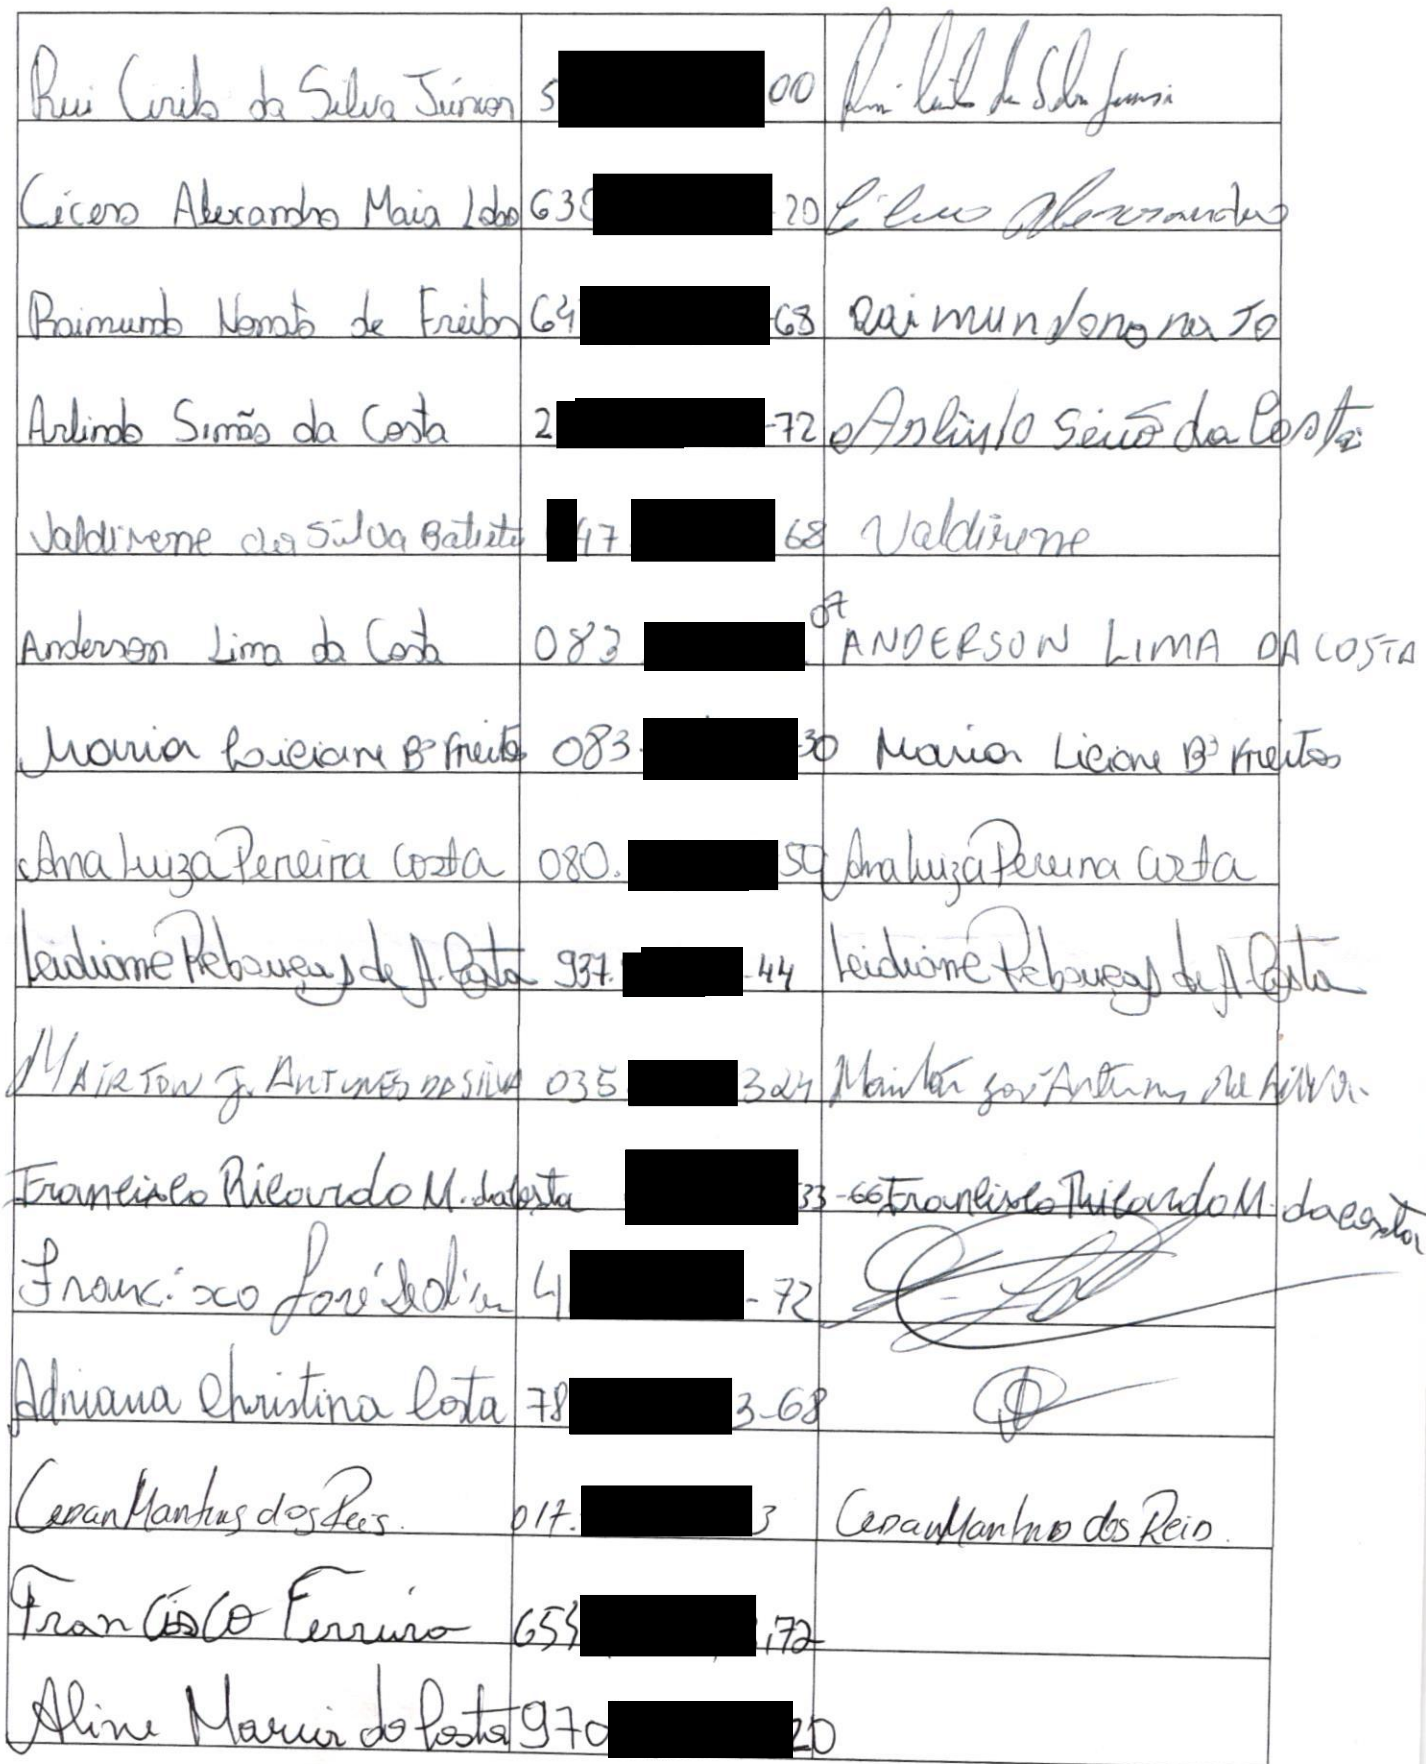 Rui Cirilo da Silva Júnior 5 00 Rui Cirilo da Silva Junior
Cícero Alexandro Maia Lobo 63 20 Cícero Alexsandro
Raimundo Nonato de Freitas 64 -68 Raimundo nona to
Arlindo Simão da Costa 2 -72 Arlindo Simão da Costa
Valdirene da Silva Batista 47 68 Valdirene
Anderson Lima da Costa 083 07 ANDERSON LIMA DA COSTA
Maria Liciane Bª Freitas 083 30 Maria Liciane Bª Freitas
Ana Luiza Pereira Costa 080. 50 Ana Luiza Pereira Costa
Leidiane Rebouças de A. Costa 937. -44 Leidiane Rebouças de A. Costa
MAIRTON J. ANTUNES DA SILVA 035 324 Mairton José Antunes da Silva
Francisco Ricardo M. da Costa 33-66 Francisco Ricardo M. da Costa
Francisco José de 4 -72
Adriana Christina Costa 78 3-68
dos Reis. 017. 3 dos Reis.
Francisco Ferreira 653 ,72
Aline Maria da Costa 970 20